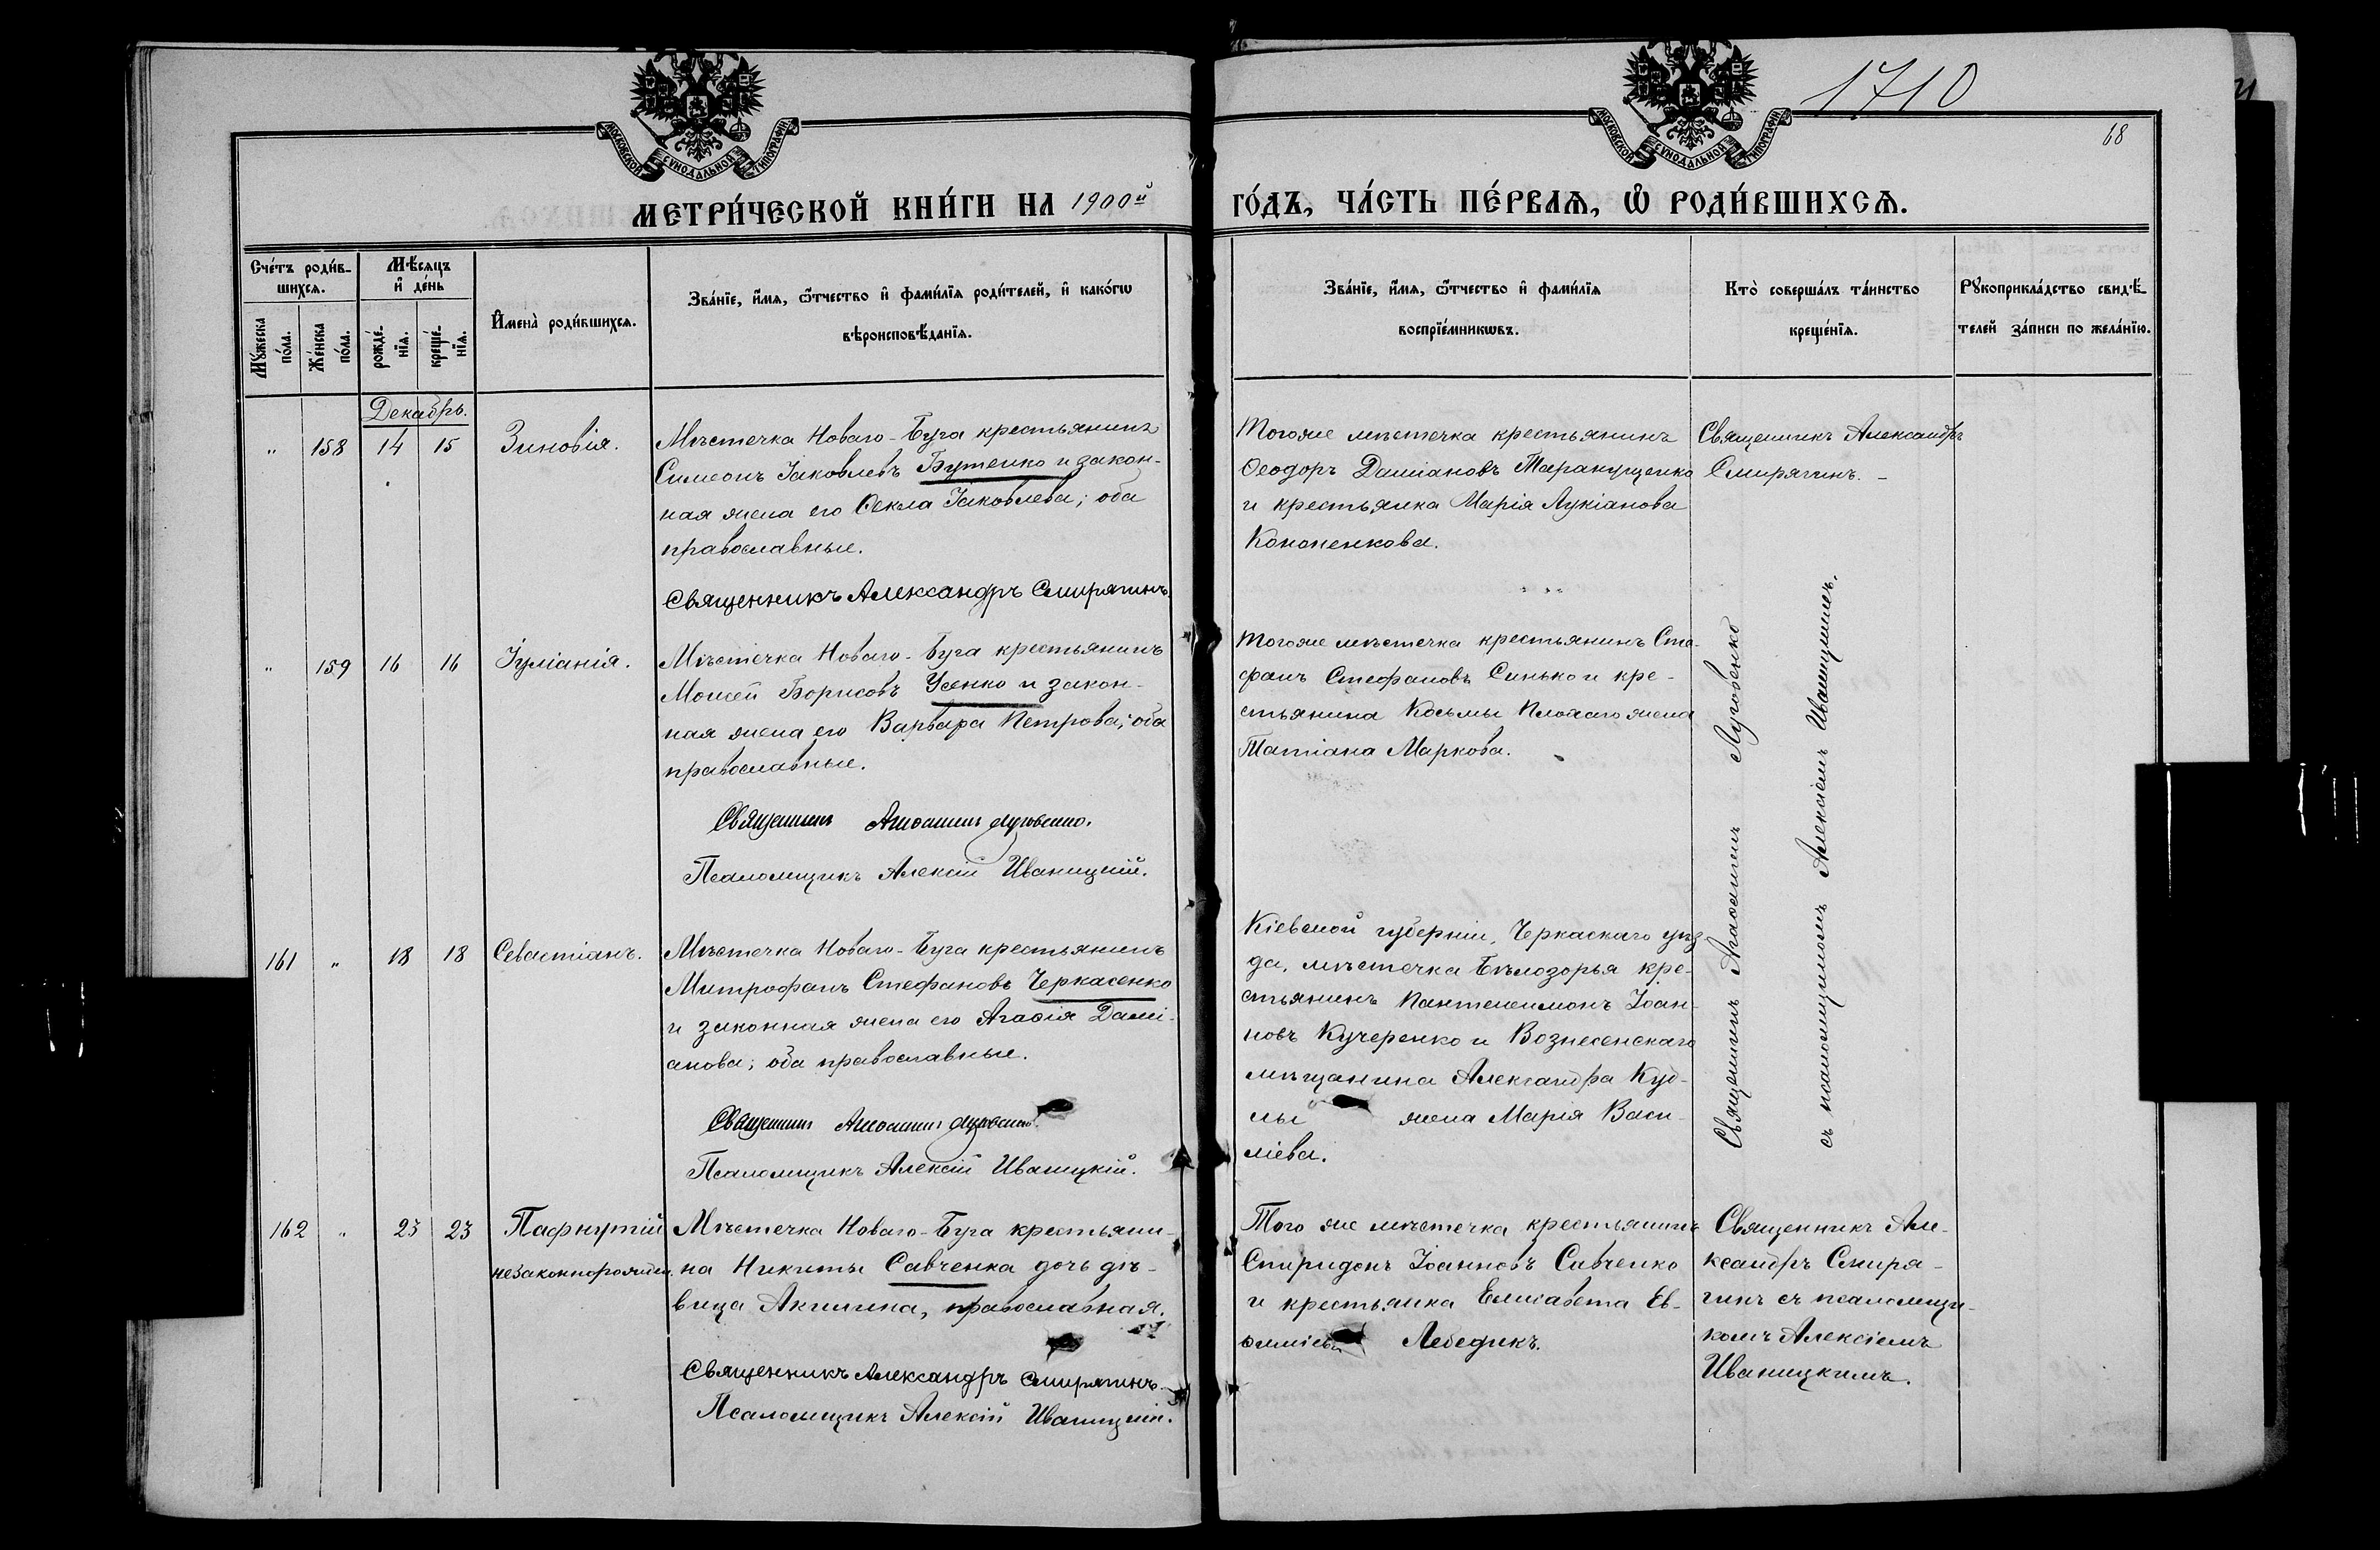 МОСКОВСКОЙ СѴНОДАЛЬНОЙ ТИПОГРАФІИ
МОСКОВСКОЙ СѴНОДАЛЬНОЙ ТИПОГРАФІИ
1710
68
МЕТРИ́ЧЕСКОЙ КНИ́ГИ НА 1900й ГО́ДЪ, ЧА́СТЬ ПЕ́РВАѦ, Ѡ҆ РОДИ́ВШИХСѦ.
Сче́тъ роди́в-
шихсѧ.
Мꙋ́жеска по́ла.
Же́нска по́ла.
Мѣ́сѧцъ
и҆ де́нь
рожде́-нїѧ.
креще́-нїѧ.
И҆мена̀ роди́вшихсѧ.
Зва́нїе, и҆́мѧ, ѻ҆́тчество и҆ фами́лїѧ роди́телей, и҆ како́гѡ
вѣроисповѣ́данїѧ.
Зва́нїе, и҆́мѧ, ѻ҆́тчество и҆ фами́лїѧ
воспрїе́мникѡвъ.
Кто̀ соверша́лъ та́инство
креще́нїѧ.
Рꙋкоприкла́дство свидѣ́-
телей за́писи по жела́нїю.
Декабрь.
" 158 14 15 Зиновія.
Мѣстечка Новаго-Буга крестьянинъ
Симеонъ Іаковлевъ Бутенко и закон-
ная жена его Ѳекла Іаковлева; оба
православные.
Священникъ Александръ Смирягинъ.
Тогоже мѣстечка крестьянинъ
Ѳеодоръ Даміановъ Таранущенко
и крестьянка Марія Лукіанова
Кононенкова.
Священникъ Александръ
Смирягинъ. -
" 159 16 16 Іуліанія.
Мѣстечка Новаго-Буга крестьянинъ
Моисей Борисовъ Усенко и закон-
ная жена его Варвара Петрова; оба
православные.
Священникъ Луговенко.
Псаломщикъ Алексій Иваницкій.
Тогоже мѣстечка крестьянинъ Сте-
фанъ Стефановъ Синько и кре-
стьянина Косьмы жена
Татіана Маркова.
Священникъ Луговенко
съ псаломщикомъ Алексіемъ Иваницкимъ.
161 " 18 18 Севастіанъ.
Мѣстечка Новаго-Буга крестьянинъ
Митрофанъ Стефановъ Черкасенко
и законная жена его Агаѳія Дамі-
анова; оба православные.
Священникъ Луговенко.
Псаломщикъ Алексій Иваницкій.
Кіевской губерніи, Черкаскаго уѣз-
да, мѣстечка Бѣлозорья кре-
стьянинъ Пантелеимонъ Іоан-
новъ Кучеренко и Вознесенскаго
мѣщанина Александра Куд-
лы жена Марія Васи-
ліева.
162 " 23 23 Пафнутій
незаконнорожден.
Мѣстечка Новаго-Буга крестьяни-
на Никиты Савченка дочь дѣ-
вица Акилина, православная.
Священникъ Александръ Смирягинъ.
Псаломщикъ Алексій Иваницкій.
Того же мѣстечка крестьянинъ
Спиридонъ Іоанновъ Савченко
и крестьянка Елисавета Ев-
ѳиміева Лебедикъ.
Священникъ Але-
ксандръ Смиря-
гинъ съ псаломщи-
комъ Алексіемъ
Иваницкимъ.